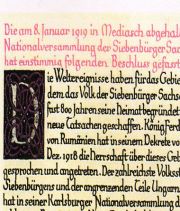 Die am 8. Januar 1919 in Mediasch abgehal
Nationalversammlung der Siebenbürger Sac
hat einstimmig folgenden Beschluss gefasst
Die Weltereignisse haben für das Gebie
dem, das Volk der Siebenbürger Sachse
fast 800 Jahren seine Heimat begründet
neue Tatsachen geschaffen. König Ferd
von Rumänien hat in seinem Dekrete vo
Dez. 1918 die Herrschaft über dieses Geb
gesprochen und angetreten. Der zahlreichste Volksst
Siebenbürgens und der angrenzenden Teile Ungarn
hat in seiner Karlsburger Nationalversammlung d